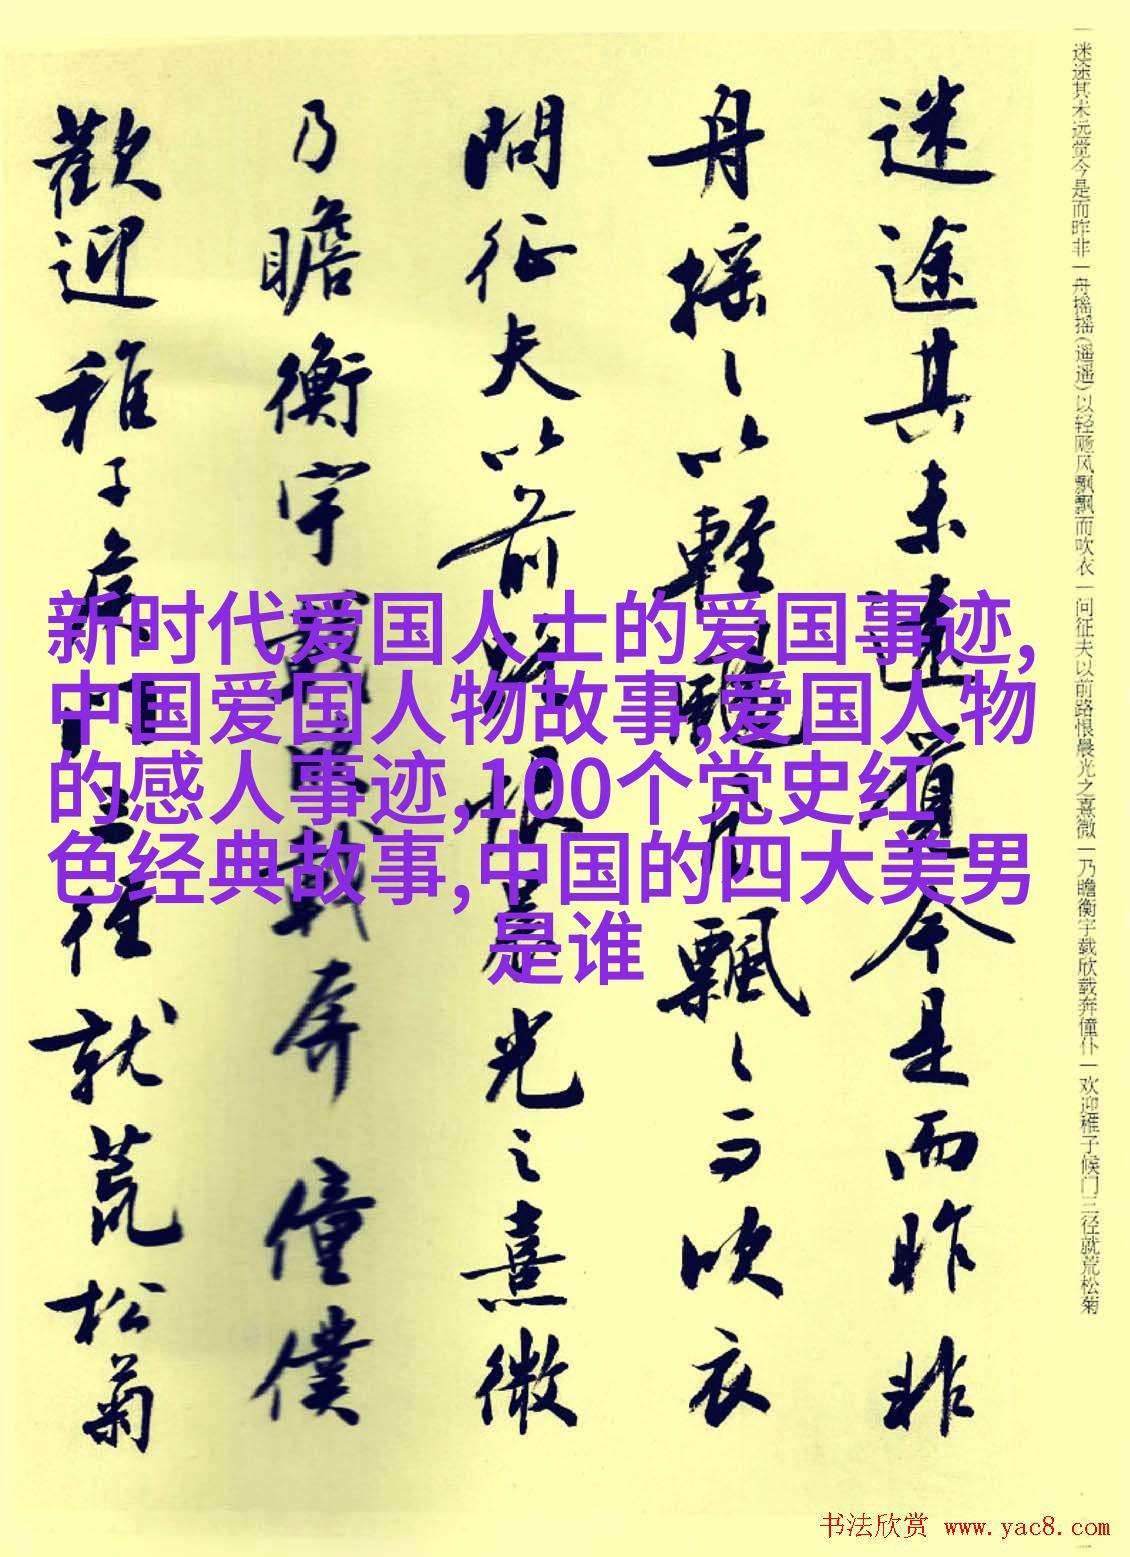 迷途其未远觉今是而昨非
舟摇摇以轻飏风飘飘而吹衣
問征夫以前路恨晨光之熹微
乃瞻衡宇載欣載奔僮僕
歡迎稚子候门三径就荒松菊
一迷途其未远觉今是而昨非一舟摇摇(遥遥)以轻飏风飘飘而吹衣一问征夫以前路恨晨光之熹微一乃瞻衡宇载欣载奔僮仆一欢迎稚子候门三径就荒松菊
新时代爱国人士的爱国事迹,
中国爱国人物故事,爱国人物
的感人事迹,100个党史红
色经典故事,中国的四大美男
是谁
书法欣赏 www.yac8.com